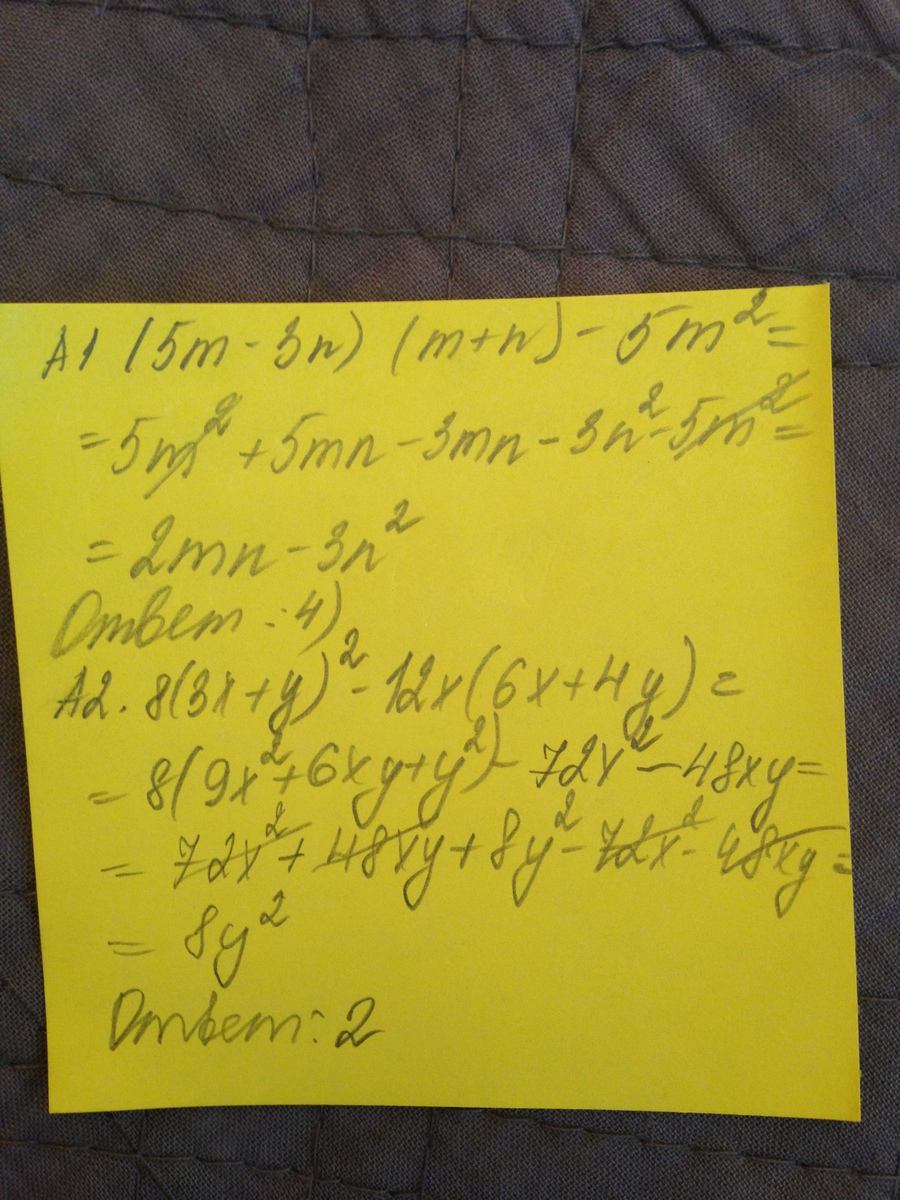 A1 (5m - 3n) (m+n) - 5m² =
= 5m² + 5mn - 3mn - 3n² - 5m² =
= 2mn - 3n²
Ответ: 4)
A2. 8(3x+y)² - 12x(6x+4y) =
= 8(9x²+6xy+y²) - 72x² - 48xy =
= 72x² + 48xy + 8y² - 72x² - 48xy =
= 8y²
Ответ: 2